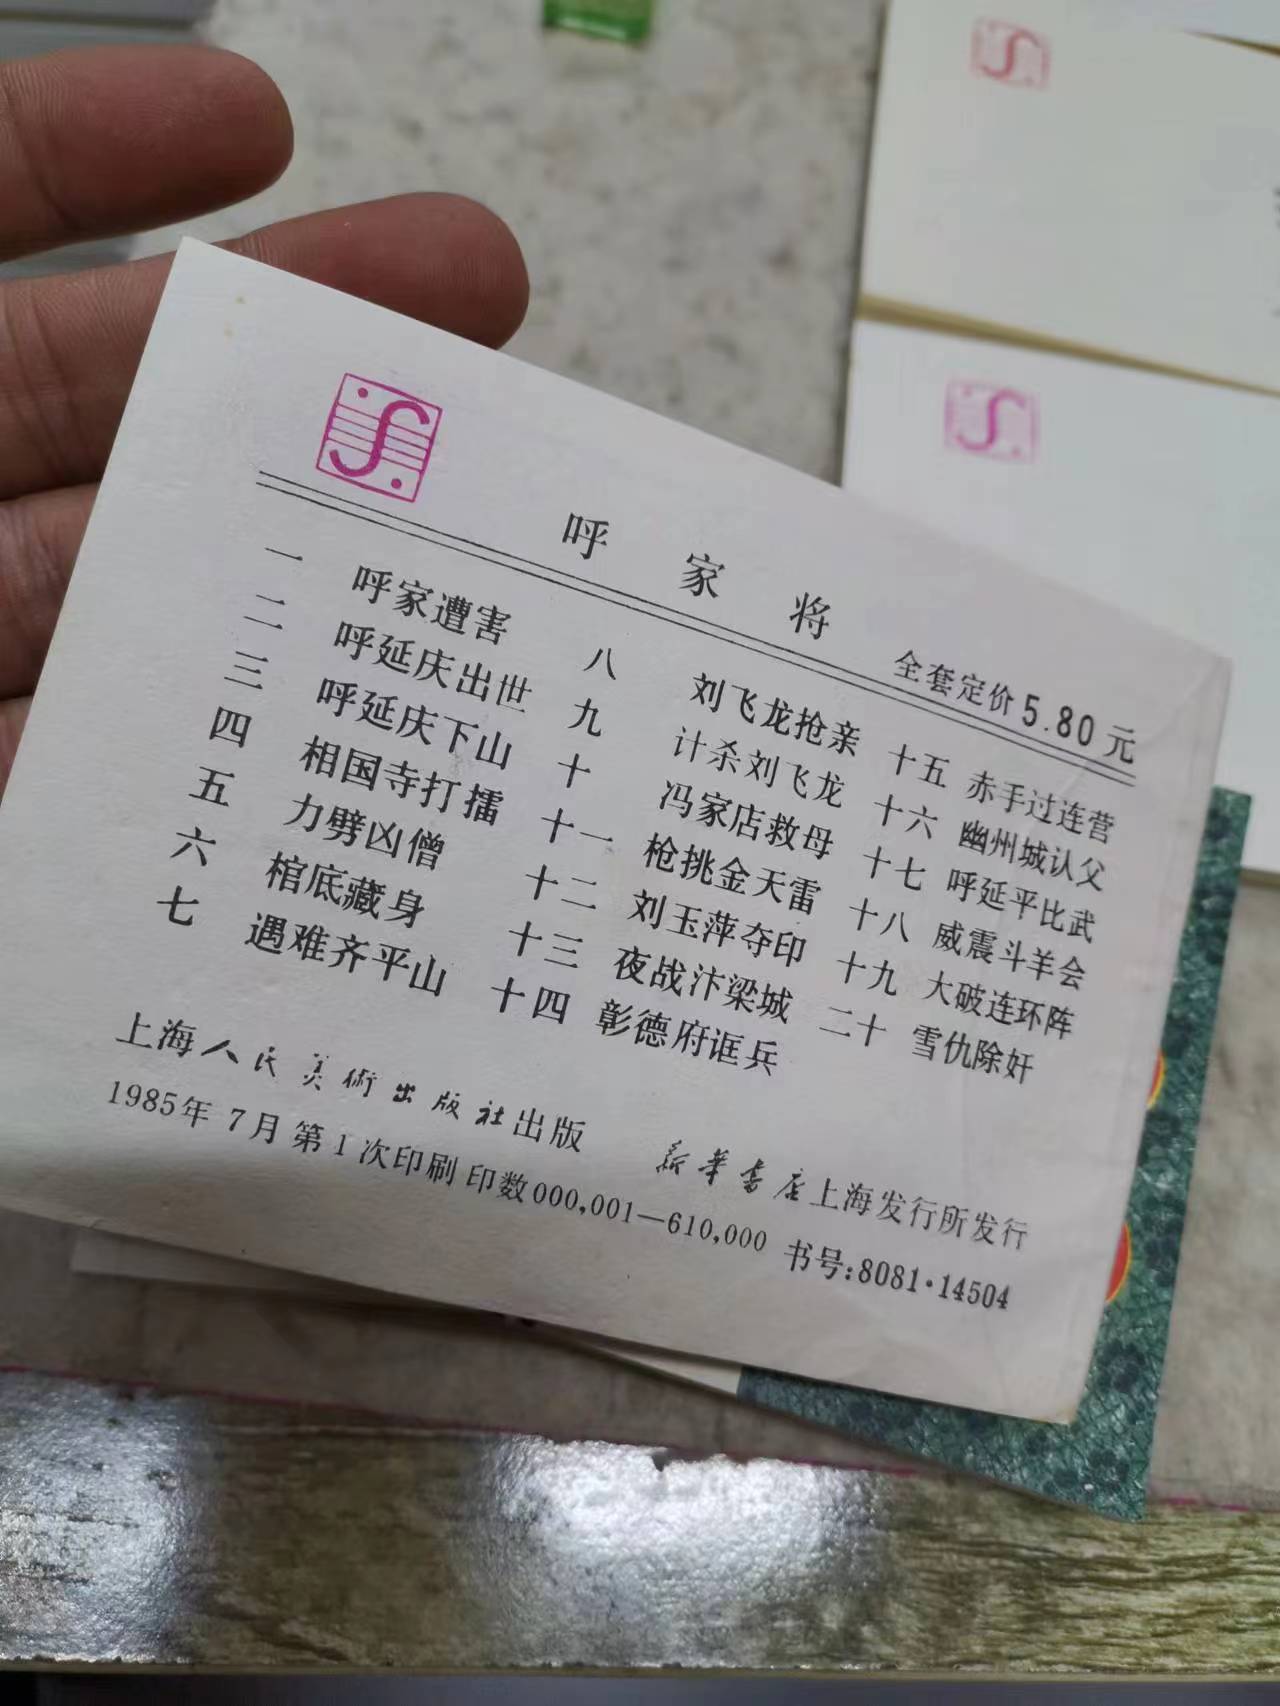 呼家将
全套定价5.80元
一 呼家遭害 八 刘飞龙抢亲 十五 赤手过连营
二 呼延庆出世 九 计杀刘飞龙 十六 幽州城认父
三 呼延庆下山 十 冯家店救母 十七 呼延平比武
四 相国寺打擂 十一 枪挑金天雷 十八 威震斗羊会
五 力劈凶僧 十二 刘玉萍夺印 十九 大破连环阵
六 棺底藏身 十三 夜战汴梁城 二十 雪仇除奸
七 遇难齐平山 十四 彰德府诓兵
上海人民美術出版社出版 新華書店上海发行所发行
1985年7月第1次印刷 印数000,001—610,000 书号:8081·14504